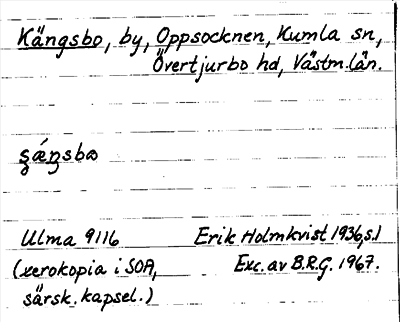 Kängsbo, by, Oppsocknen, Kumla sn,
Övertjurbo hd, Västm. län.
Ulma 9116 Erik Holmkvist 1936, s. 1
(xerokopia i SOA, Exc. av B.R.G. 1967.
särsk. kapsel.)